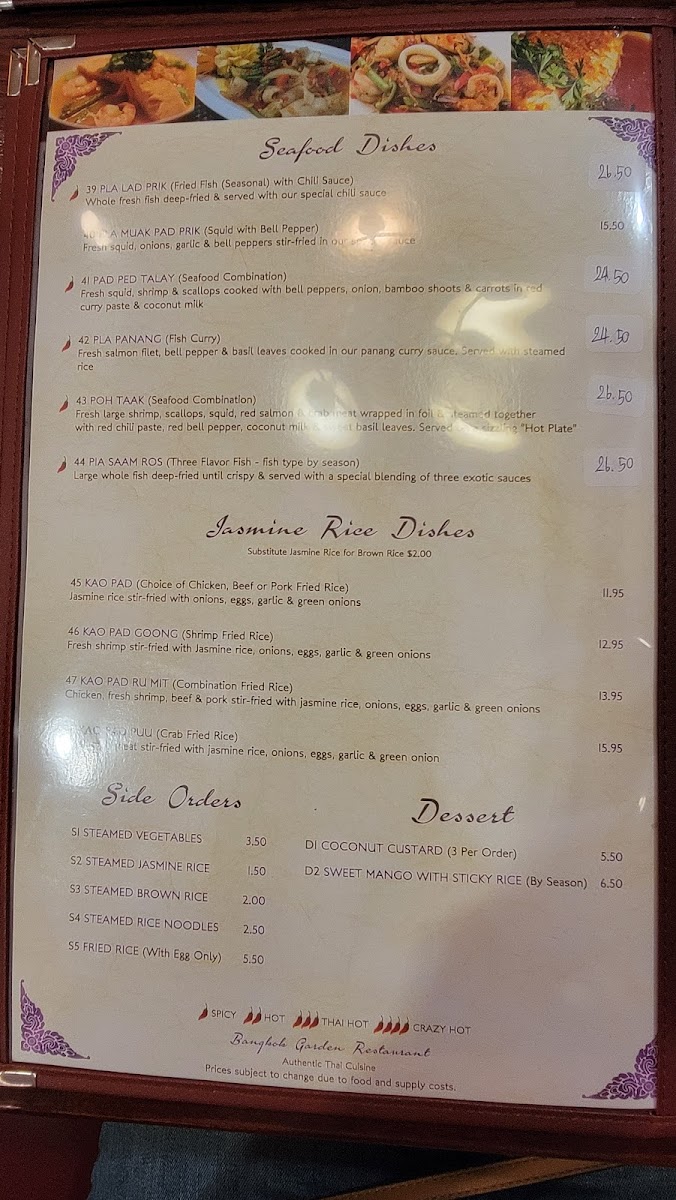 Seafood Dishes
39 PLA LAD PRIK (Fried Fish (Seasonal) with Chili Sauce) 26.50
Whole fresh fish deep-fried & served with our special chili sauce
MUAK PAD PRIK (Squid with Bell Pepper) 15.50
Fresh squid, onions, garlic & bell peppers stir-fried in our sauce
41 PAD PED TALAY (Seafood Combination) 24.50
Fresh squid, shrimp & scallops cooked with bell peppers, onion, bamboo shoots & carrots in red
curry paste & coconut milk
42 PLA PANANG (Fish Curry) 24.50
Fresh salmon filet, bell pepper & basil leaves cooked in our panang curry sauce. Served with steamed
rice
43 POH TAAK (Seafood Combination) 26.50
Fresh large shrimp, scallops, squid, red salmon & crab meat wrapped in foil & steamed together
with red chili paste, red bell pepper, coconut milk & basil leaves. Served sizzling "Hot Plate"
44 PIA SAAM ROS (Three Flavor Fish - fish type by season) 26.50
Large whole fish deep-fried until crispy & served with a special blending of three exotic sauces
Jasmine Rice Dishes
Substitute Jasmine Rice for Brown Rice $2.00
45 KAO PAD (Choice of Chicken, Beef or Pork Fried Rice) 11.95
Jasmine rice stir-fried with onions, eggs, garlic & green onions
46 KAO PAD GOONG (Shrimp Fried Rice) 12.95
Fresh shrimp stir-fried with Jasmine rice, onions, eggs, garlic & green onions
47 KAO PAD RU MIT (Combination Fried Rice) 13.95
Chicken, fresh shrimp, beef & pork stir-fried with jasmine rice, onions, eggs, garlic & green onions
PUU (Crab Fried Rice) 15.95
meat stir-fried with jasmine rice, onions, eggs, garlic & green onion
Side Orders
S1 STEAMED VEGETABLES 3.50
S2 STEAMED JASMINE RICE 1.50
S3 STEAMED BROWN RICE 2.00
S4 STEAMED RICE NOODLES 2.50
S5 FRIED RICE (With Egg Only) 5.50
Dessert
D1 COCONUT CUSTARD (3 Per Order) 5.50
D2 SWEET MANGO WITH STICKY RICE (By Season) 6.50
SPICY HOT THAI HOT CRAZY HOT
Bangkok Garden Restaurant
Authentic Thai Cuisine
Prices subject to change due to food and supply costs.